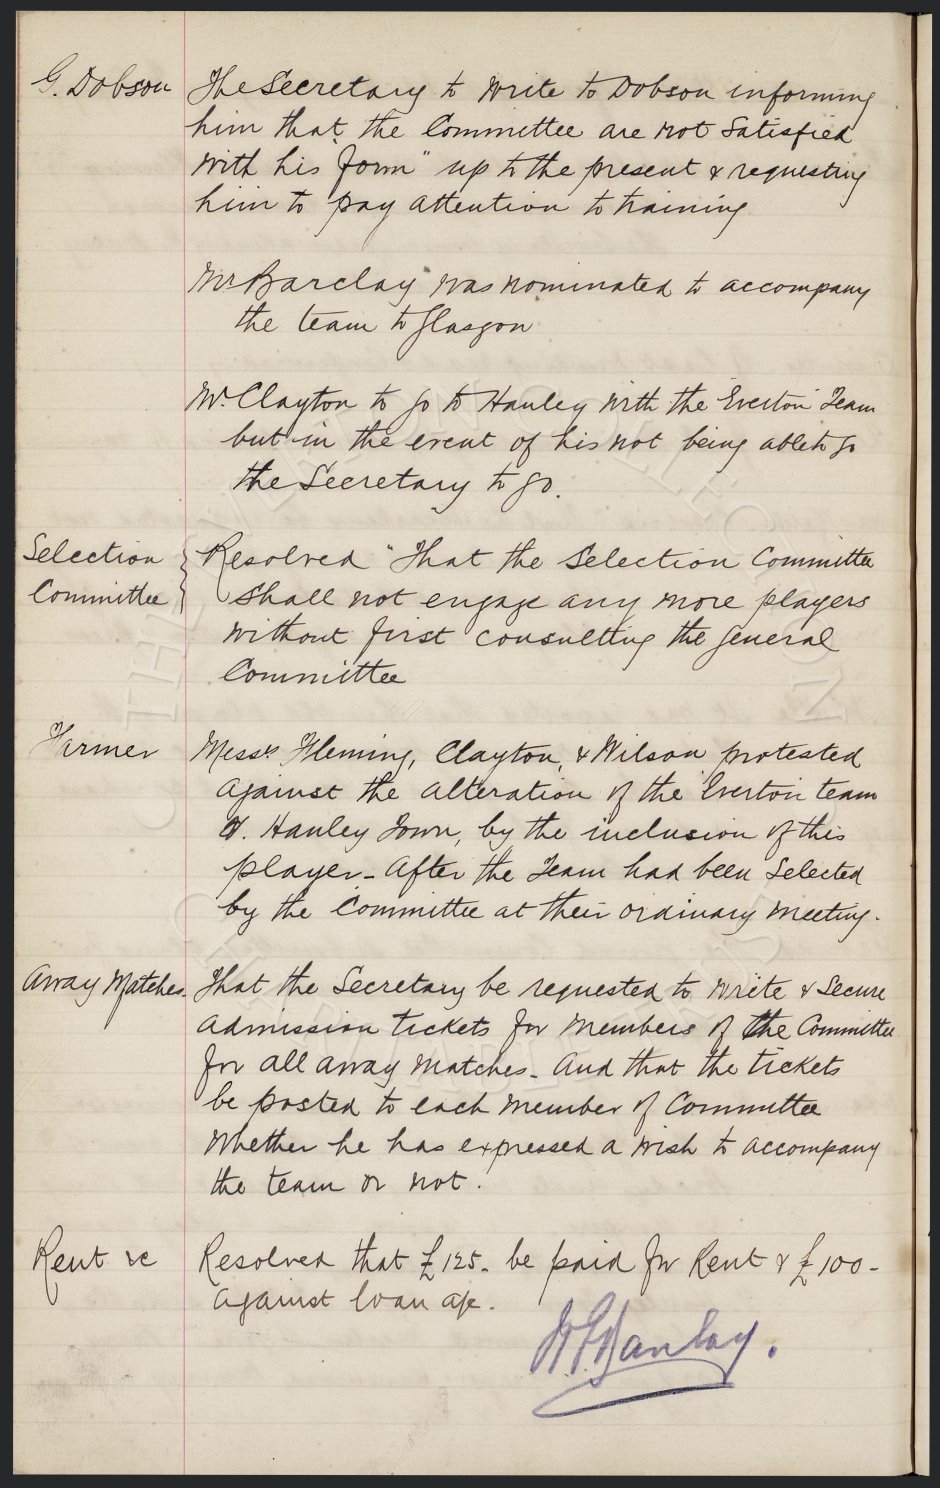 G. Dobson The Secretary to write to Dobson informing
him that the Committee are not satisfied
with his "form" up to the present & requesting
him to pay attention to training
Mr Barclay was nominated to accompany
the team to Glasgow
Mr. Clayton to go to Hanley with the Everton Team
but in the event of his not being able to go
the Secretary to go.
Selection Resolved "That the Selection Committee
Committee shall not engage any more players
without first consulting the General
Committee
Farmer Messrs Fleming, Clayton, & Wilson protested
against the alteration of the Everton team
v. Hanley Town, by the inclusion of this
player - after the Team had been selected
by the Committee at their ordinary meeting.
Away Matches. That the Secretary be requested to write & secure
admission tickets for members of the Committee
for all away matches - and that the tickets
be posted to each member of Committee
whether he has expressed a wish to accompany
the team or not.
Rent &c Resolved that £125- be paid for Rent & £100-
against loan a/c.